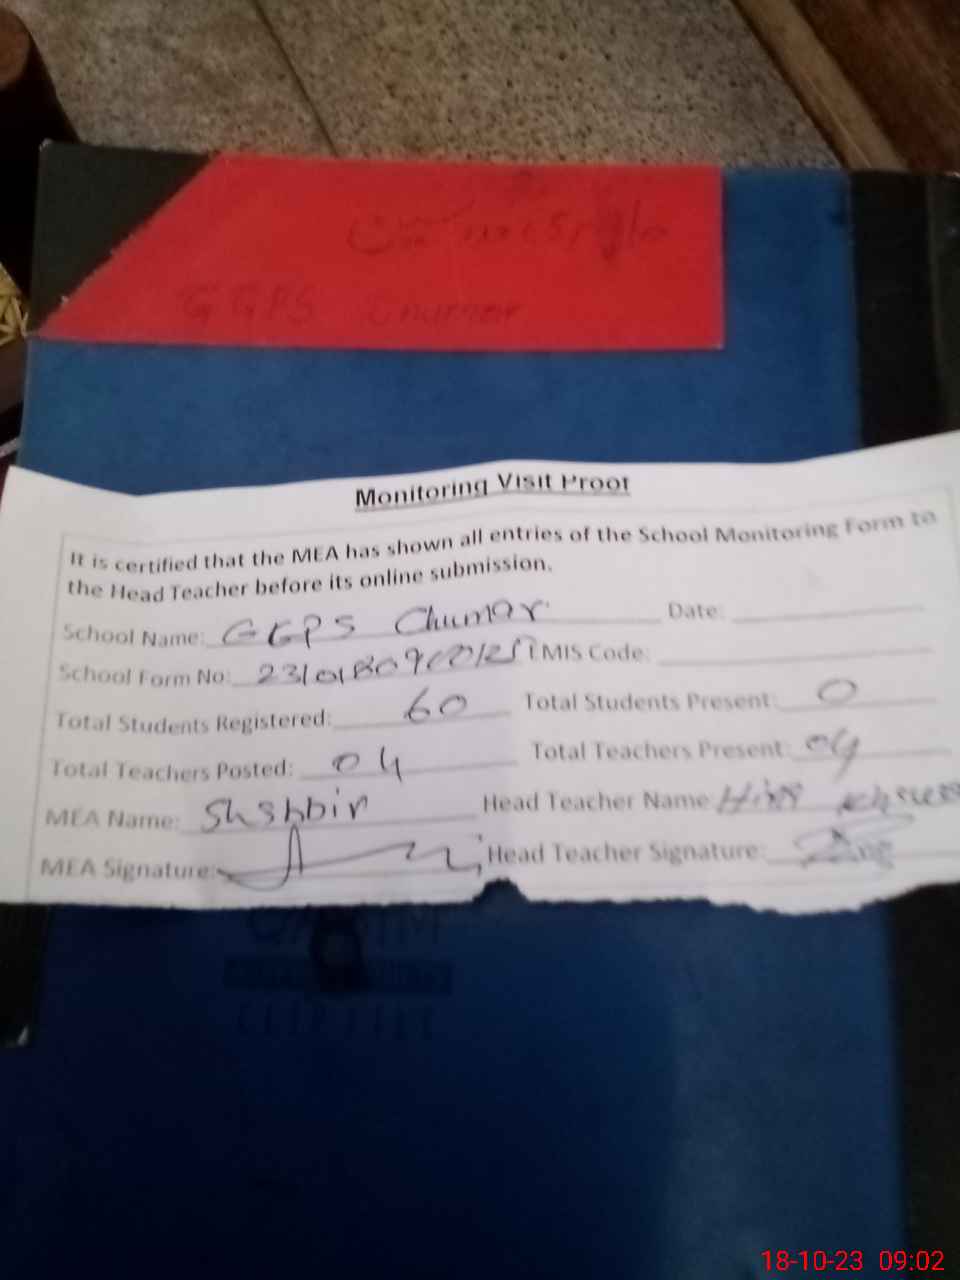 GGPS Chumar
Monitoring Visit Proof
It is certified that the MEA has shown all entries of the School Monitoring Form to
the Head Teacher before its online submission.
School Name: GGPS Chumar Date:
School Form No: EMIS Code:
Total Students Registered: 60 Total Students Present: 0
Total Teachers Posted: 04 Total Teachers Present: 04
MEA Name: Shabbir Head Teacher Name:
MEA Signature: Head Teacher Signature:
18-10-23 09:02